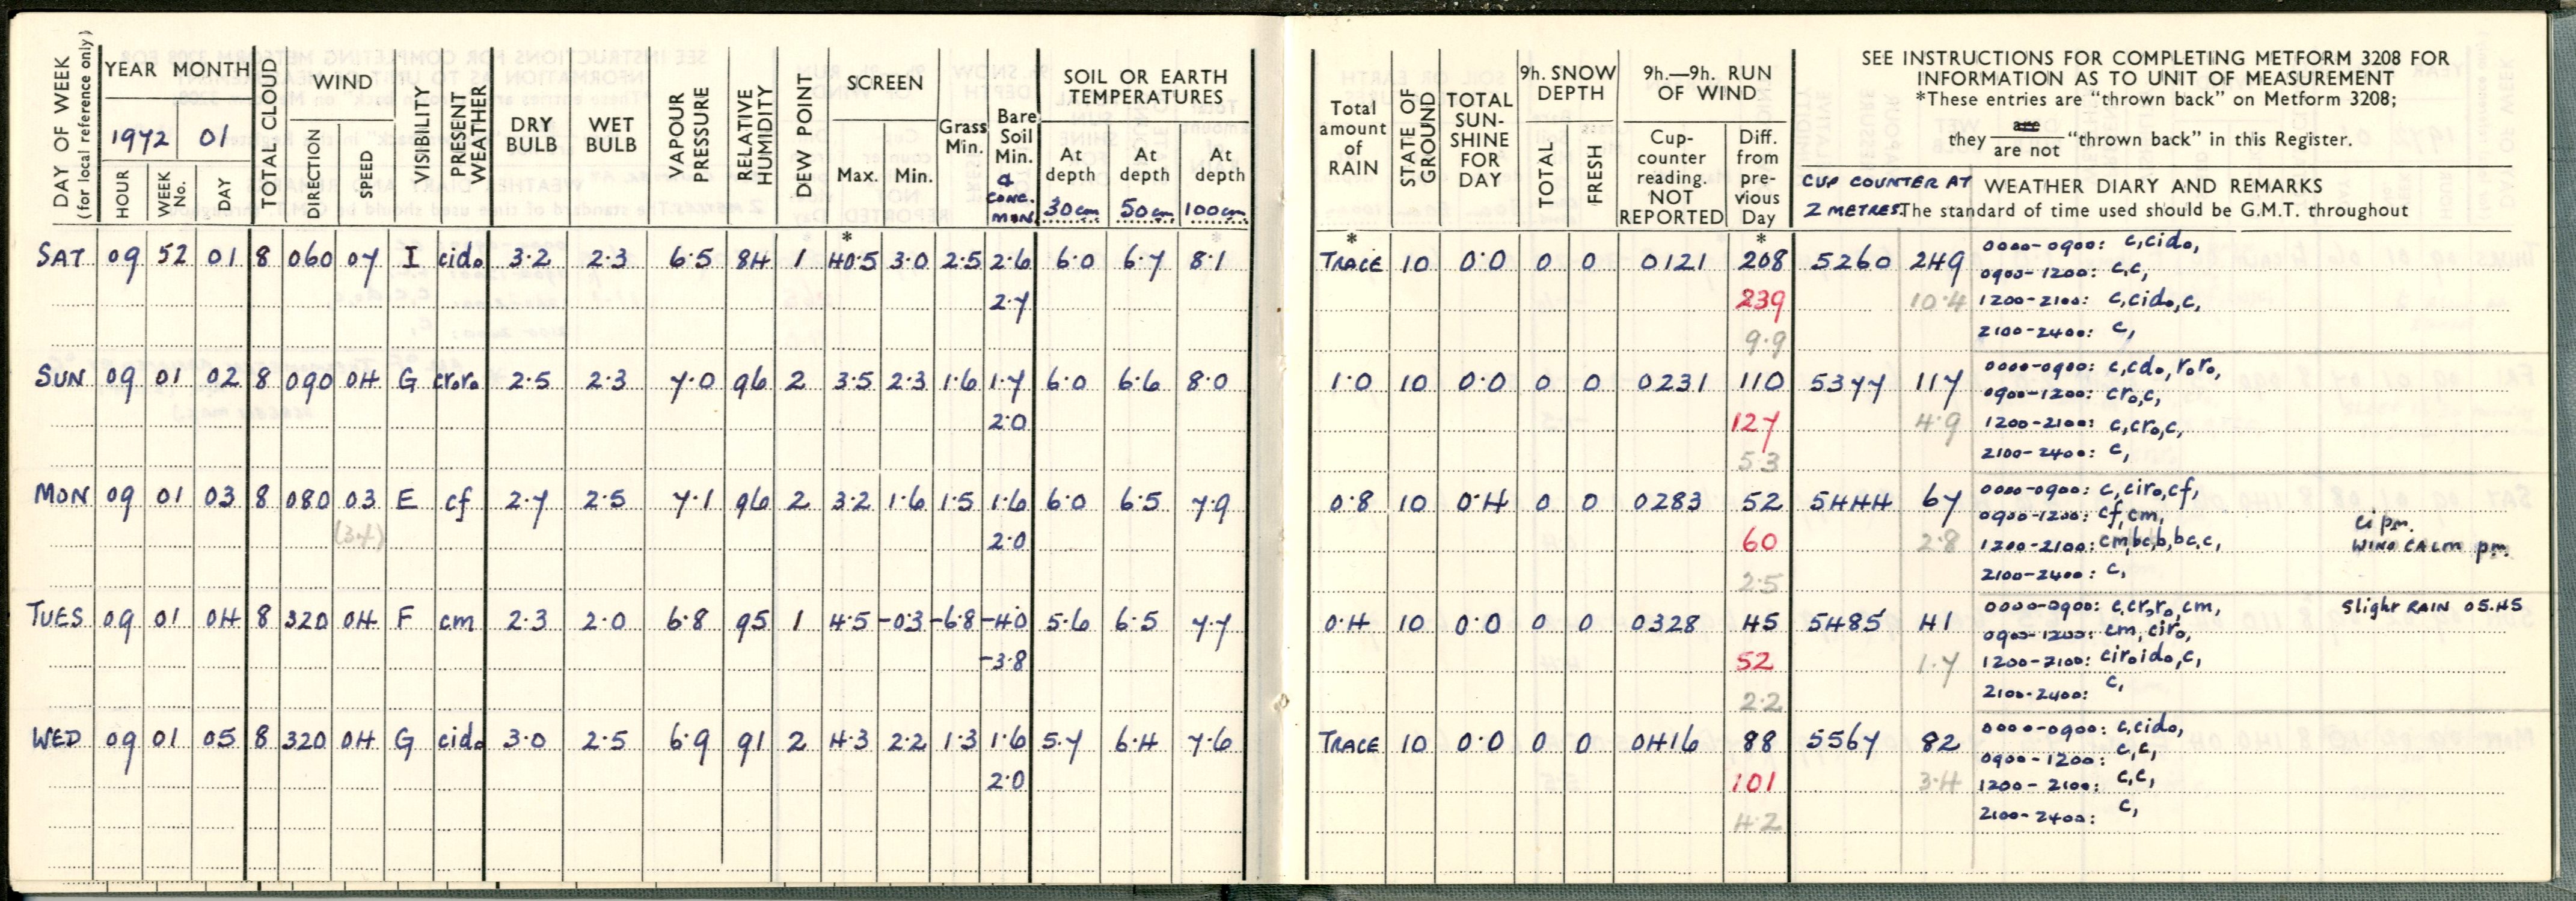 SEE INSTRUCTIONS FOR COMPLETING METFORM 3208 FOR
INFORMATION AS TO UNIT OF MEASUREMENT
*These entries are "thrown back" on Metform 3208;
they are / are not "thrown back" in this Register.
DAY OF WEEK (for local reference only)
YEAR MONTH
1972 01
HOUR WEEK No. DAY
TOTAL CLOUD
WIND
DIRECTION SPEED
VISIBILITY
PRESENT WEATHER
DRY BULB
WET BULB
VAPOUR PRESSURE
RELATIVE HUMIDITY
DEW POINT
SCREEN
Max. Min.
Grass Min.
Bare Soil Min. & CONC. MIN.
SOIL OR EARTH TEMPERATURES
At depth 30cm
At depth 50cm
At depth 100cm
Total amount of RAIN
STATE OF GROUND
TOTAL SUN-SHINE FOR DAY
9h. SNOW DEPTH
TOTAL FRESH
9h.—9h. RUN OF WIND
Cup-counter reading. NOT REPORTED
Diff. from pre-vious Day
CUP COUNTER AT 2 METRES.
WEATHER DIARY AND REMARKS
The standard of time used should be G.M.T. throughout
* * * *
SAT 09 52 01 8 060 07 I cido 3.2 2.3 6.5 84 1 40.5 3.0 2.5 2.6 6.0 6.7 8.1 TRACE 10 0.0 0 0 0121 208 5260 249 0000-0900: c,cido,
0900-1200: c,c,
2.7 239 10.4 1200-2100: c,cido,c,
9.9 2100-2400: c,
SUN 09 01 02 8 090 04 G croro 2.5 2.3 7.0 96 2 3.5 2.3 1.6 1.7 6.0 6.6 8.0 1.0 10 0.0 0 0 0231 110 5377 117 0000-0900: c,cdo,roro,
0900-1200: cro,c,
2.0 127 4.9 1200-2100: c,cro,c,
5.3 2100-2400: c,
MON 09 01 03 8 080 03 E cf 2.7 2.5 7.1 96 2 3.2 1.6 1.5 1.6 6.0 6.5 7.9 0.8 10 0.4 0 0 0283 52 5444 67 0000-0900: c,ciro,cf,
0900-1200: cf,cm, ci pm.
(3.4) 2.0 60 2.8 1200-2100: cm,bc,b,bc,c, WIND CALM pm.
2.5 2100-2400: c,
TUES 09 01 04 8 320 04 F cm 2.3 2.0 6.8 95 1 4.5 -0.3 -6.8 -4.0 5.6 6.5 7.7 0.4 10 0.0 0 0 0328 45 5485 41 0000-0900: c,cro,ro,cm, Slight RAIN 05.45
0900-1200: cm,ciro,
-3.8 52 1.7 1200-2100: ciroido,c,
2.2 2100-2400: c,
WED 09 01 05 8 320 04 G cido 3.0 2.5 6.9 91 2 4.3 2.2 1.3 1.6 5.7 6.4 7.6 TRACE 10 0.0 0 0 0416 88 5567 82 0000-0900: c,cido,
0900-1200: c,c,
2.0 101 3.4 1200-2100: c,c,
4.2 2100-2400: c,